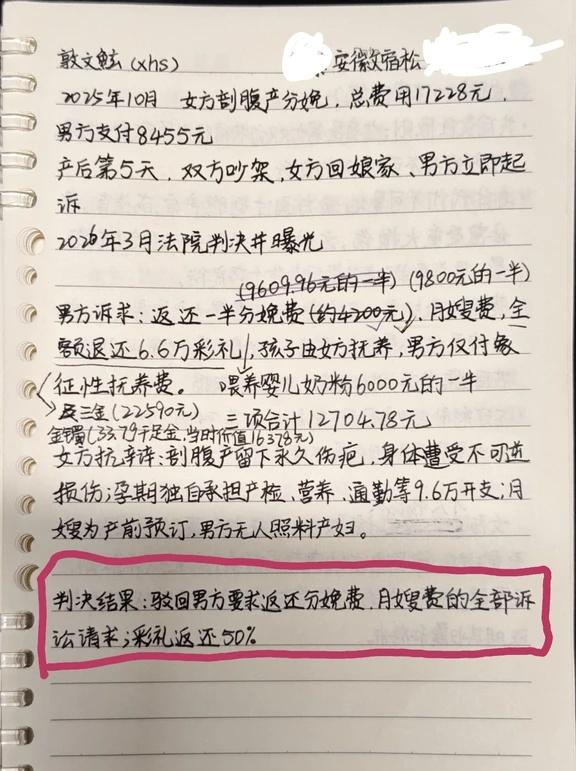 敦文鮌(xhs) 安徽宿松
2025年10月 女方剖腹产分娩，总费用17228元，
男方支付8455元
产后第5天，双方吵架，女方回娘家、男方立即起
诉
2026年3月法院判决并曝光
(9609.96元的一半) (9800元的一半)
男方诉求：返还一半分娩费(约4200元)、月嫂费，全
额退还6.6万彩礼，孩子由女方抚养，男方仅付象
征性抚养费。 喂养婴儿奶粉6000元的一半
及三金(22590元) 三项合计12704.78元
金镯(33.79千足金，当时价值16378元)
女方抗辩：剖腹产留下永久伤疤，身体遭受不可逆
损伤；孕期独自承担产检、营养、通勤等9.6万开支；月
嫂为产前预订，男方无人照料产妇。
判决结果：驳回男方要求返还分娩费、月嫂费的全部诉
讼请求；彩礼返还50%